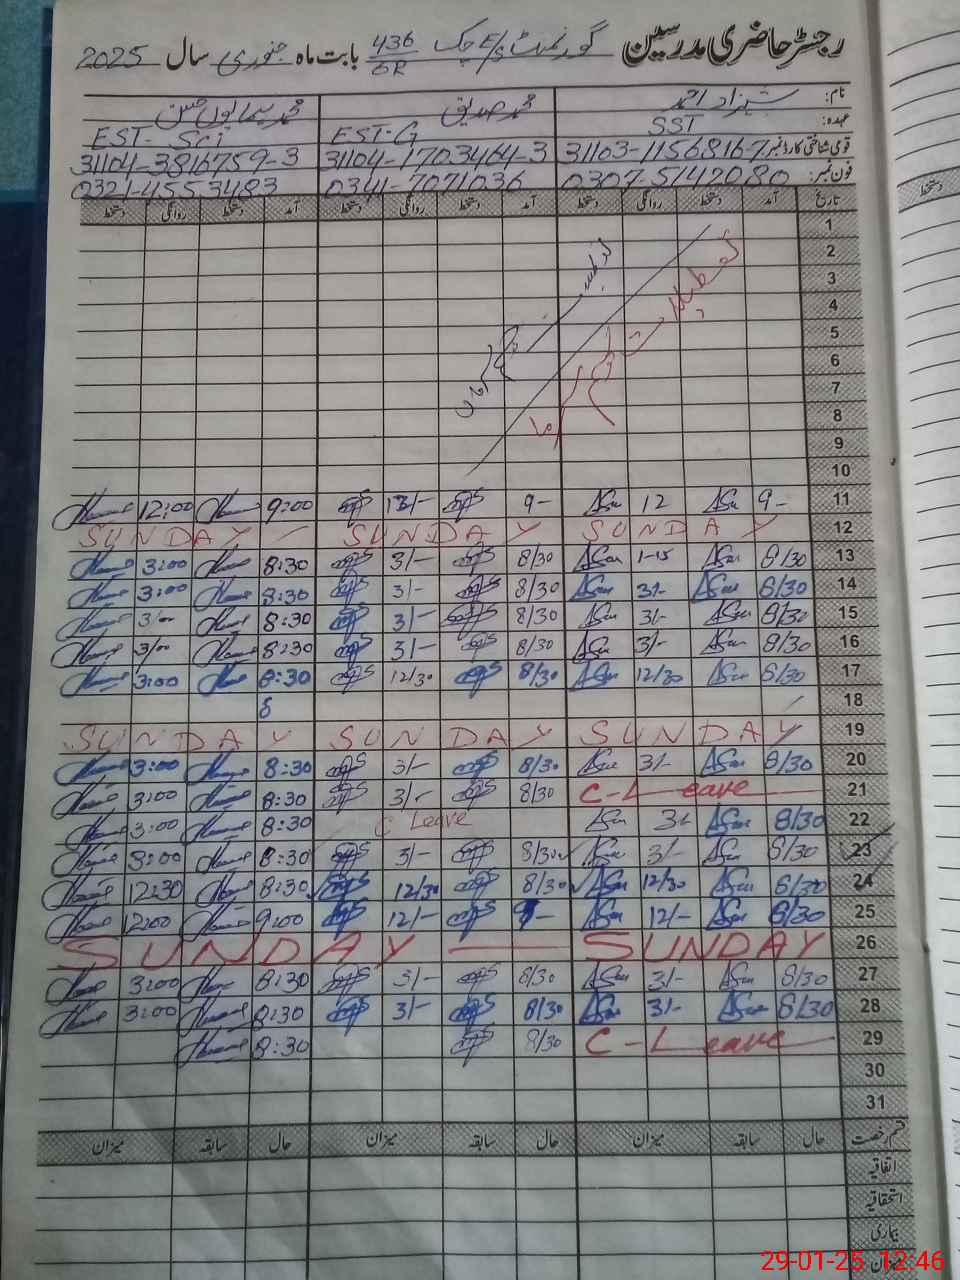 رجسٹر حاضری مدرسین گورنمنٹ E/S چک 436/6R بابت ماہ جنوری سال 2025
نام: شہزاد احمد محمد صدیق محمد ہمایوں حسن
عہدہ: SST EST-G EST-Sci
قومی شناختی کارڈ نمبر 31103-1156816-7 31104-1703464-3 31104-3816759-3
فون نمبر: 0307-5147080 0341-7071036 0321-4553483
تاریخ آمد دستخط روانگی دستخط آمد دستخط روانگی دستخط آمد دستخط روانگی دستخط
1
2
3
4
5
6
7
8
9
10
11 9- 12 9- 12/- 9:00 12:00
12 SUNDAY SUNDAY SUNDAY
13 8/30 1-15 8/30 3/- 8:30 3:00
14 8/30 3/- 8/30 3/- 8:30 3:00
15 8/30 3/- 8/30 3/- 8:30 3/00
16 8/30 3/- 8/30 3/- 8:30 3/00
17 8/30 12/30 8/30 12/30 8:30 3:00
18 8
19 SUNDAY SUNDAY SUNDAY
20 8/30 3/- 8/30 3/- 8:30 3:00
21 C-Leave 8/30 3/- 8:30 3:00
22 8/30 3/- C Leave 8:30 3:00
23 8/30 3/- 8/30 3/- 8:30 3:00
24 8/30 12/30 8/30 12/30 8:30 12:30
25 8/30 12/- 9- 12/- 9:00 12:00
26 SUNDAY — SUNDAY
27 8/30 3/- 8/30 3/- 8:30 3:00
28 8/30 3/- 8/30 3/- 8:30 3:00
29 C-Leave 8/30 8:30
30
31
قسم رخصت حال سابقہ میزان حال سابقہ میزان حال سابقہ میزان
اتفاقیہ
استحقاقیہ
بیماری
میزان
29-01-25 12:46